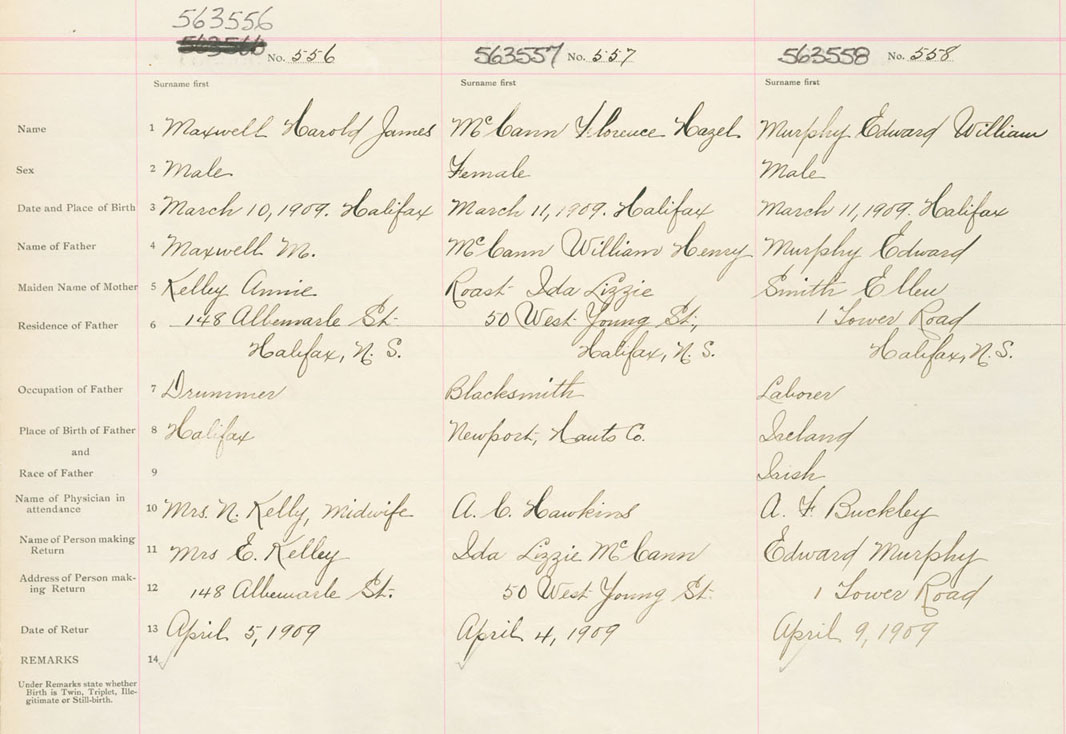 563556
No. 556 563557 No. 557 563558 No. 558
Surname first Surname first Surname first
Name 1 Maxwell Harold James McCann Florence Hazel Murphy Edward William
Sex 2 Male Female Male
Date and Place of Birth 3 March 10, 1909. Halifax March 11, 1909. Halifax March 11, 1909. Halifax
Name of Father 4 Maxwell M. McCann William Henry Murphy Edward
Maiden Name of Mother 5 Kelley Annie Roast Ida Lizzie Smith Ellen
Residence of Father 6 148 Albemarle St. 50 West Young St., 1 Tower Road
Halifax, N. S. Halifax, N. S. Halifax, N. S.
Occupation of Father 7 Drummer Blacksmith Laborer
Place of Birth of Father 8 Halifax Newport, Hants Co. Ireland
and
Race of Father 9 Irish
Name of Physician in
attendance 10 Mrs. N. Kelly, midwife A. C. Hawkins A. F Buckley
Name of Person making
Return 11 Mrs E. Kelley Ida Lizzie McCann Edward Murphy
Address of Person mak-
ing Return 12 148 Albemarle St. 50 West Young St. 1 Tower Road
Date of Retur 13 April 5, 1909 April 4, 1909 April 9, 1909
REMARKS 14
Under Remarks state whether
Birth is Twin, Triplet, Ille-
gitimate or Still-birth.